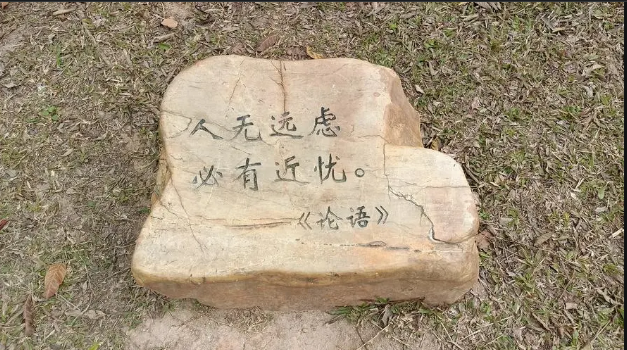 人无远虑
必有近忧。
《论语》